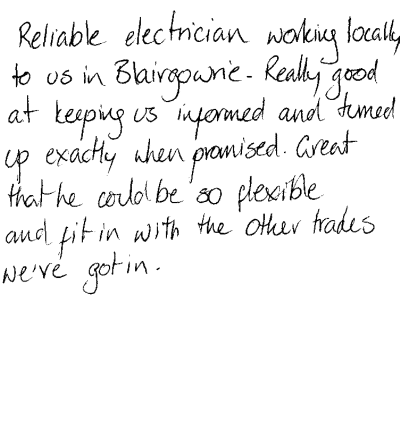 Reliable electrician working locally
to us in Blairgowrie - Really good
at keeping us informed and turned
up exactly when promised. Great
that he could be so flexible
and fit in with the other trades
we've got in.